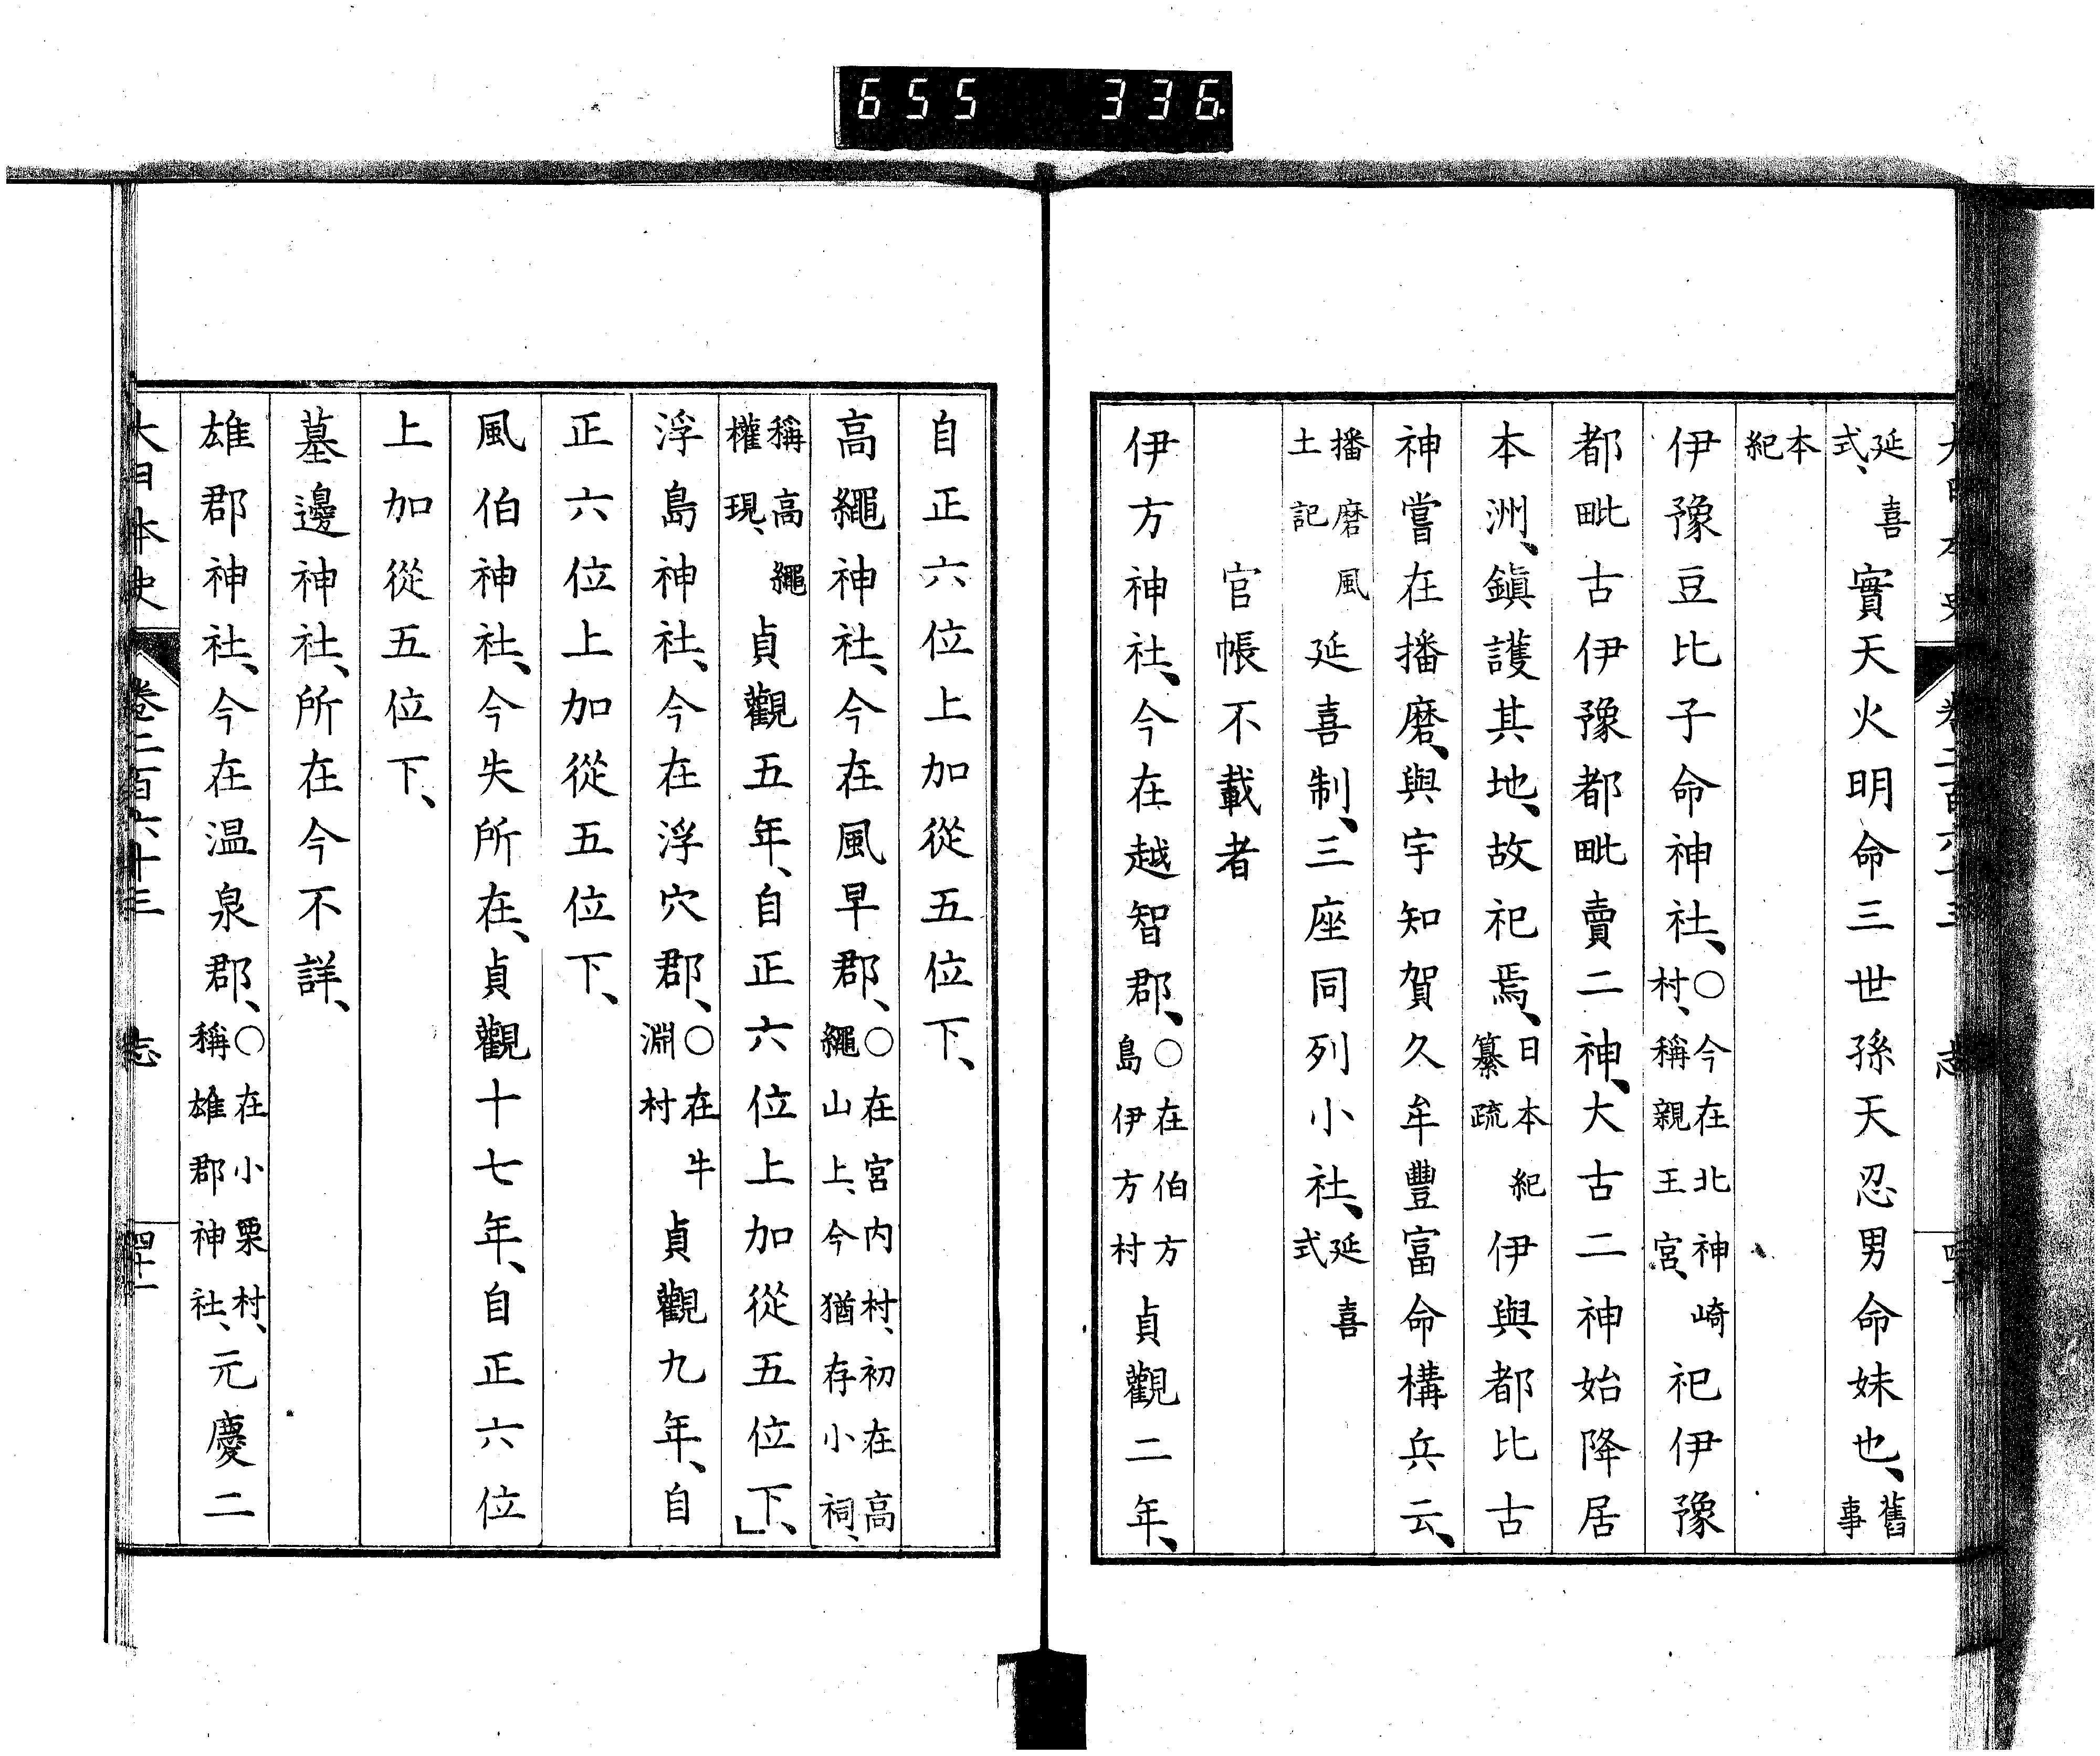 655 336
延喜式、實天火明命三世孫天忍男命妹也、舊事
本紀
伊豫豆比子命神社、○今在北神崎村、稱親王宮、祀伊豫
都毗古伊豫都毗賣二神、大古二神始降居
本洲、鎮護其地、故祀焉、日本紀纂疏伊與都比古
神嘗在播磨、與宇知賀久牟豐富命構兵云、
播磨風土記延喜制、三座同列小社、延喜式
官帳不載者
伊方神社、今在越智郡、○在伯方島伊方村貞觀二年、
自正六位上加從五位下、
高繩神社、今在風早郡、○在宮内村、初在高繩山上、今猶存小祠、
稱高繩權現、貞觀五年、自正六位上加從五位下、」
浮島神社、今在浮穴郡、○在牛淵村貞觀九年、自
正六位上加從五位下、
風伯神社、今失所在、貞觀十七年、自正六位
上加從五位下、
墓邊神社、所在今不詳、
雄郡神社、今在温泉郡、○在小栗村、稱雄郡神社、元慶二
大日本史 卷二百六十三 志